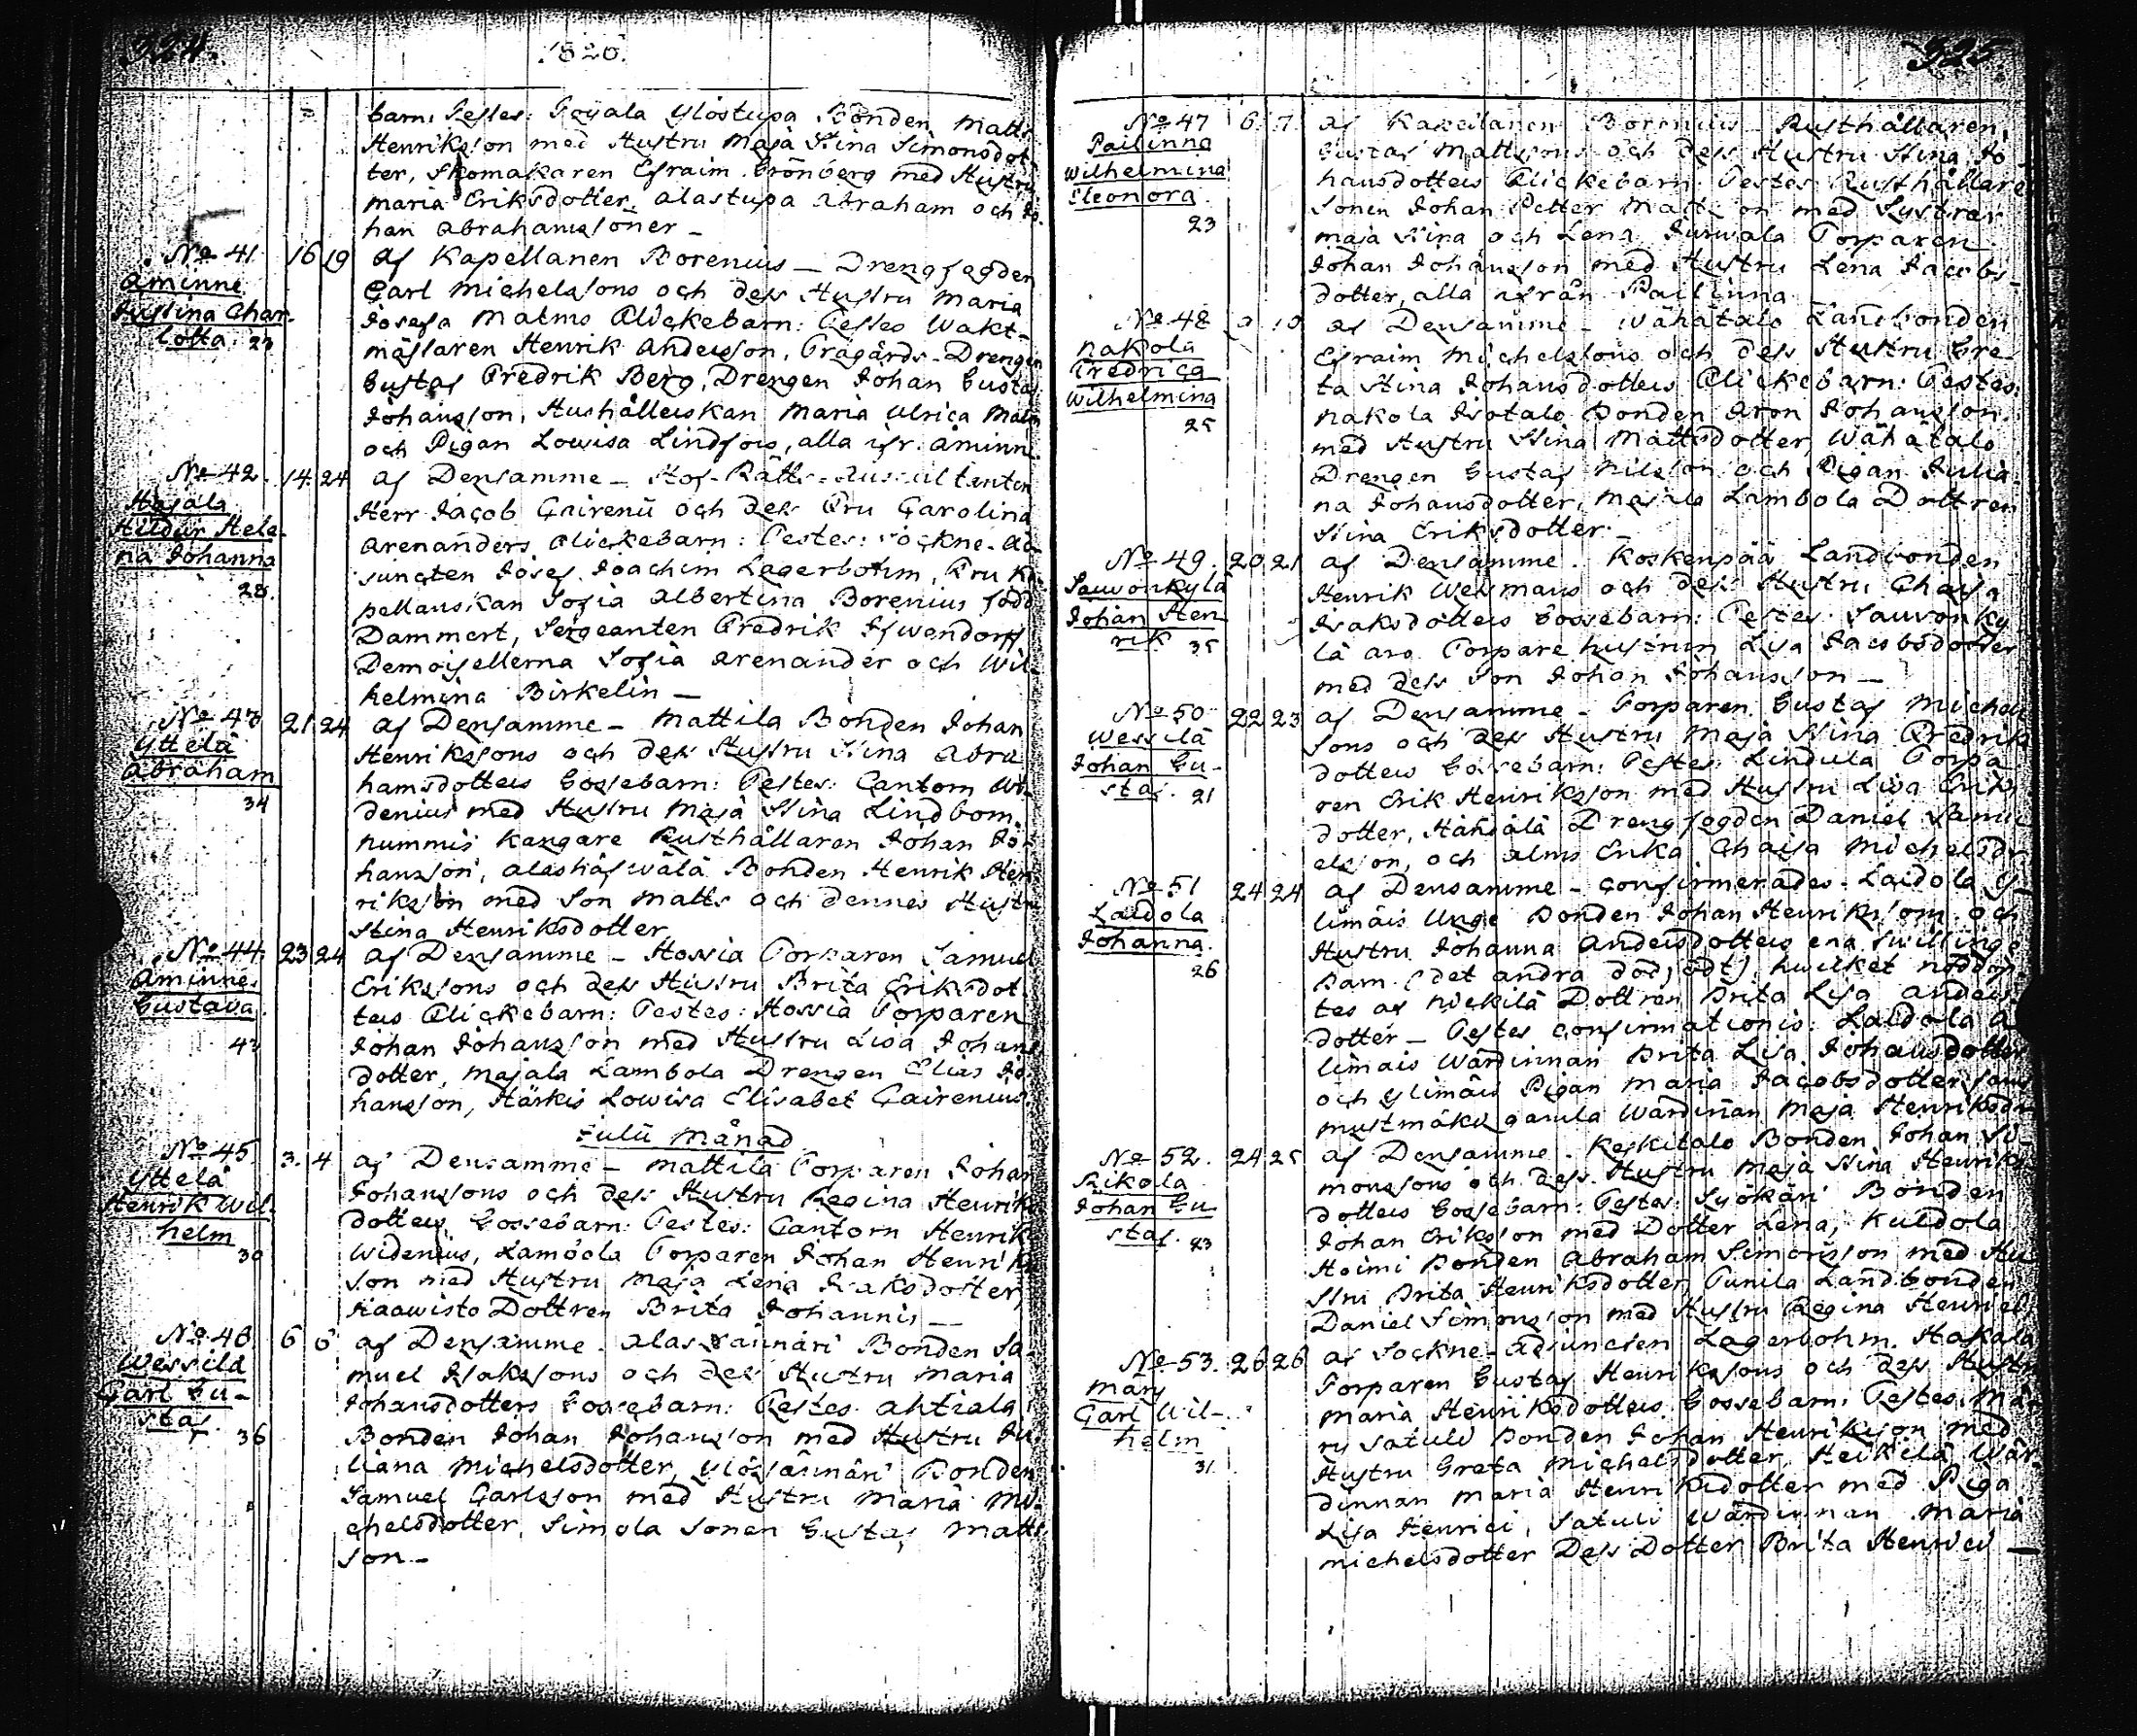 324.
1820.
barn: Testes: Toyala Ylöstupa Bonden Matts
Henriksson med Hustru Maja Stina Simonsdot-
ter, Skomakaren Efraim Grönberg med Hustru
Maria Eriksdotter, Alastupa Abraham och Jo-
han Abrahamssöner —
No 41. 16 19 af Kapellanen Borenius — Drengfogden
Åminne Carl Michelssons och dess Hustru Maria
Justina Char- Josefa Malms Flickebarn: Testes Wakt-
lotta 23 mästaren Henrik Andersson, Trägårds-Drengen
Gustaf Fredrik Berg, Drengen Johan Gustaf
Johansson, Hushållerskan Maria Ulrica Malm
och Pigan Lowisa Lindfors, alla ifr. Åminne.
No 42. 14. 24 af Densamme — Hof-Rätts-Auscultanten
Hajala Herr Jacob Cairenii och dess Fru Carolina
Hildur Hele- Arenanders Flickebarn: Testes: Sockne-Ad-
na Johanna juncten Josef Joachim Lagerbohm, Fru Ka-
28. pellanskan Sofia Albertina Borenius född
Dammert, Sergeanten Fredrik Ifwendorff
Demoisellerna Sofia Arenander och Wil-
helmina Birkelin —
No 43 21. 24 af Densamme — Mattila Bonden Johan
Yttelä Henrikssons och dess Hustru Stina Abra
Abraham hamsdotters Gossebarn: Testes: Cantorn Wi-
34 denius med Hustru Maja Stina Lindbom.
Nummis Kangare Rusthållaren Johan Jo-
hansson, Bonden Henrik Hen
riksson med Son Matts och dennes Hustru
Stina Henriksdotter
No 44. 23 24 af Densamme — Hossia Torparen Samuel
Åminne Erikssons och dess Hustru Brita Eriksdot
Gustava. ters Flickebarn: Testes: Hossia Torparen
43 Johan Johansson med Hustru Lisa Johans
dotter, Majala Lambola Drengen Elias Jo-
hansson, Härkis Lowisa Elisabet Cairenius.
Julii Månad
No 45. 3. 4 af Densamme — Mattila Torparen Johan
Yttelä Johanssons och dess Hustru Regina Henriks
Henrik Wil- dotters Gossebarn: Testes: Cantorn Henrik
helm Widenius, Lambola Torparen Johan Henriks
30 son med Hustru Maja Lena Isaksdotter,
Haawisto Dottren Brita Johannis —
No 46. 6 6 af Densamme. Bonden Sa-
Wessilä muel Isakssons och dess Hustru Maria
Carl Gu- Johansdotters Gossebarn: Testes. Ahtiala
staf. 36 Bonden Johan Johansson med Hustru Ju
liana Michelsdotter, Bonden
Samuel Carlsson med Hustru Maria Mi-
chelsdotter, Simola Sonen Gustaf Matts
son —
325.
No 47 6. 7. af Kapellanen Borenius — Rusthållaren,
Pailinna Gustaf Mattssons och dess Hustru Stina Jo-
Wilhelmina hansdotters Flickebarn. Testes: Rusthållare
Eleonora. Sonen Johan Petter Mattsson med Systrar
23 Maja Stina och Lena, Torparen
Johan Johansson med Hustru Lena Jacobs-
dotter, alla ifrån Pailinna
No 48 af Densamme — Wähätalo Landbonden
Nakola Efraim Michelssons och dess Hustru Gre
Fredrica ta Stina Johansdotters Flickebarn: Testes:
Wilhelmina Nakola Isotalo Bonden Aron Johansson.
25 med Hustru Stina Mattsdotter, Wähätalo
Drengen Gustaf Nilsson och Pigan Julia-
na Johansdotter, Majala Lambola Dottren
Stina Eriksdotter —
No 49. 20 21 af Densamme. Koskenpää Landbonden
Sauvonkylä Henrik Wermans och dess Hustru Chaisa
Johan Hen Isaksdotters Gossebarn: Testes: Sauvonky
rik 35 lä Torpare hustrun Lisa Jacobsdotter
med dess Son Johan Johansson —
No 50 22 23 af Densamme — Torparen Gustaf Michels
Wessilä sons och dess Hustru Maja Stina Fredriks
Johan Gu- dotters Gossebarn: Testes: Lindula Torpa
staf. 21 ren Erik Henriksson med Hustru Lisa Eriks
dotter, Drengfogden Daniel Samu
elsson, och Erika Chaisa Michelsdr
No 51 24 24 af Densamme — Confirmerades. Laidola Y-
Laidola limäis Unge Bonden Johan Henrikssons och
Johanna. Hustru Johanna Andersdotters ena Twillinge
26 barn (det andra dödfödt) hwilket nöddöp-
tes af Dottren Brita Lisa Anders
dotter — Testes confirmationis: Laidola A
limäis Wärdinnan Brita Lisa Johansdotter
och Ylimäis Pigan Maria Jacobsdotter samt
gamla Wärdinnan Maja Henriksdr
No 52. 24 25 af Densamme. Keskitalo Bonden Johan Si-
Rikola monssons och dess Hustru Maja Stina Henriks
Johan Gu dotters Gossebarn: Testes: Bonden
staf. 23 Johan Eriksson med Dotter Lena, Kuldola
Heimi Bonden Abraham Simonsson med Hu
stru Brita Henriksdotter, Punila Landbonden
Daniel Simonsson med Hustru Regina
No 53. 26 26 af Sockne-Adjuncten Lagerbohm. Hakala
Märy Torparen Gustaf Henrikssons och dess Hustru
Carl Wil- Maria Henriksdotters Gossebarn: Testes. Mä-
helm ry Satuli Bonden Johan Henriksson med
31. Hustru Greta Michelsdotter, Heikilä Wär-
dinnan Maria Henriksdotter med Piga
Lisa Henrici, Satuli Wärdinnan Maria
Michelsdotter Dess Dotter Brita Henrici —